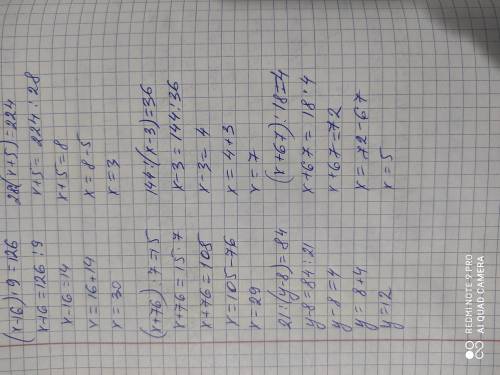 (x-16)·9=126
x-16=126:9
x-16=14
x=16+14
x=30
(x+76):7=15
x+76=15·7
x+76=105
x=105-76
x=29
21·(y-8)=84
y-8=84:21
y-8=4
y=8+4
y=12
28(x+5)=224
x+5=224:28
x+5=8
x=8-5
x=3
144:(x-3)=36
x-3=144:36
x-3=4
x=4+3
x=7
(x+67):18=4
x+67=18·4
x+67=72
x=72-67
x=5
REDMI NOTE 9 PRO
AI QUAD CAMERA